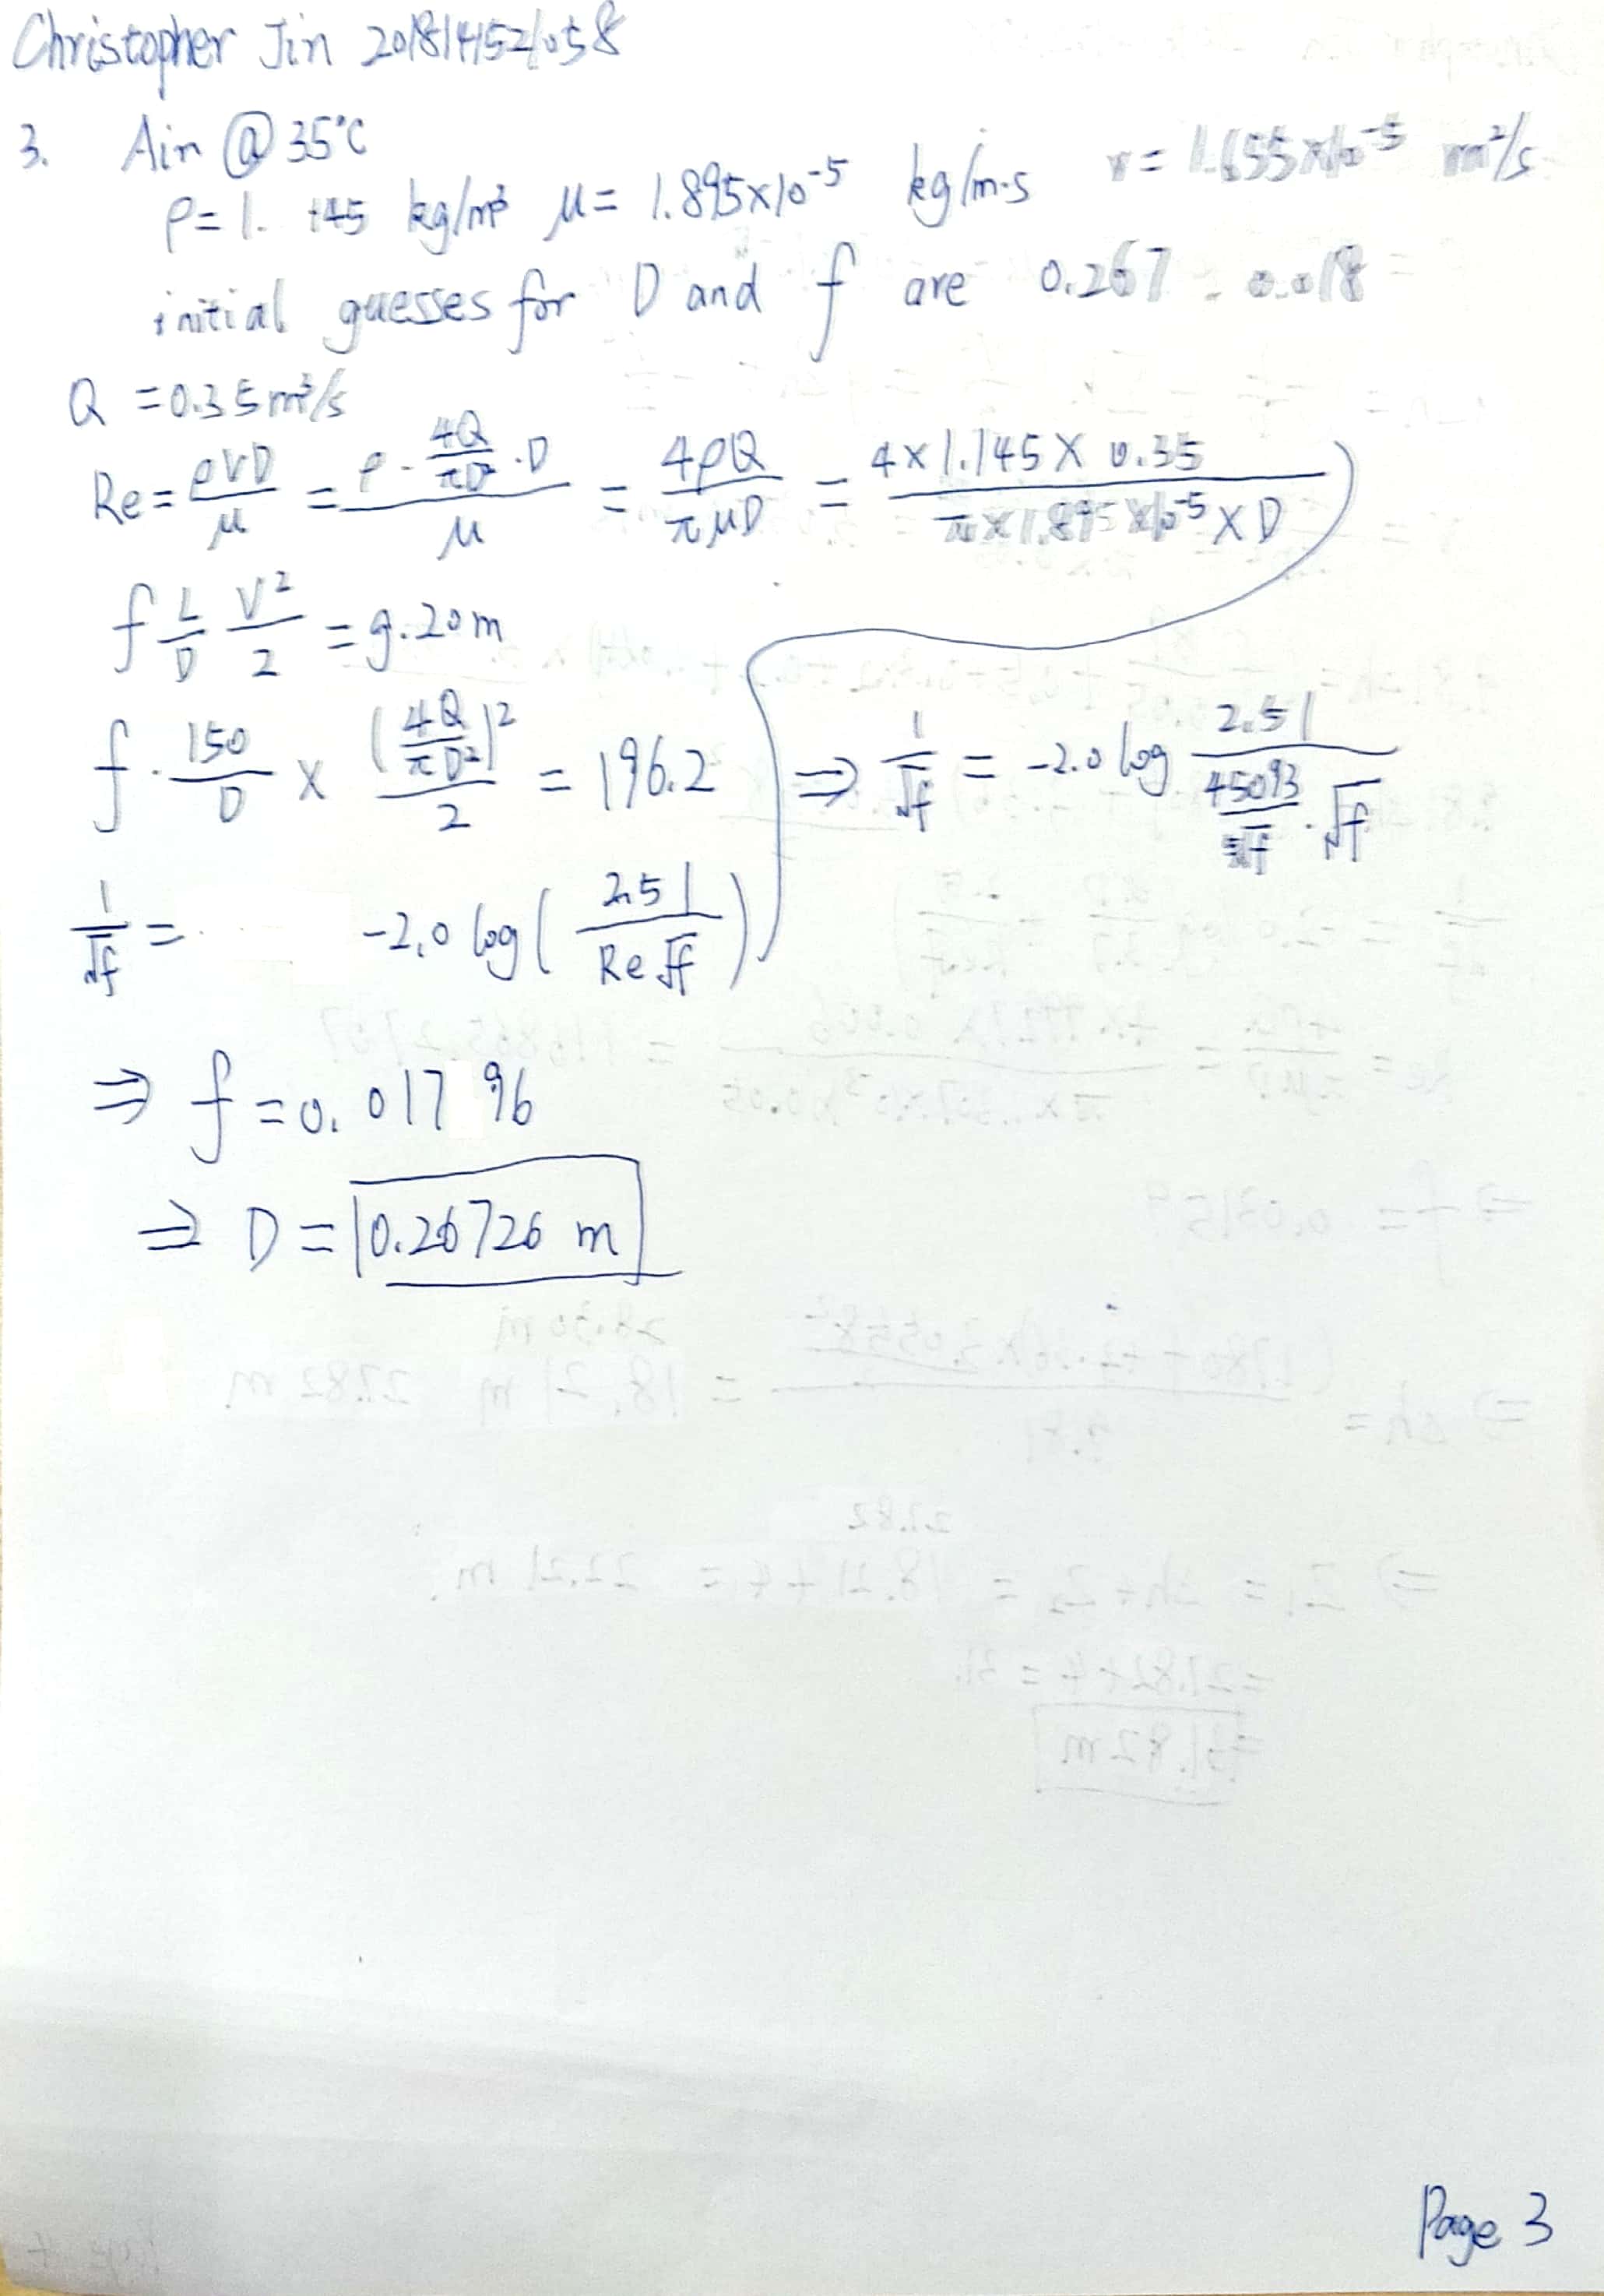 Christopher Jin 201814152058
3. Air @ 35°C
ρ = 1.145 kg/m³ μ = 1.895×10⁻⁵ kg/m·s ν = 1.655×10⁻⁵ m²/s
initial guesses for D and f are 0.267, 0.018
Q = 0.35 m³/s
Re = ρVD/μ = (ρ · 4Q/πD² · D)/μ = 4ρQ/πμD = (4 × 1.145 × 0.35)/(π × 1.895 × 10⁻⁵ × D)
f L/D V²/2 = g · 20m
f · 150/D × (4Q/πD²)²/2 = 196.2 ⇒ 1/√f = -2.0 log 2.51/(45093/ · √f)
1/√f = -2.0 log(2.51/(Re √f))
⇒ f = 0.01796
⇒ D = 0.26726 m
Page 3